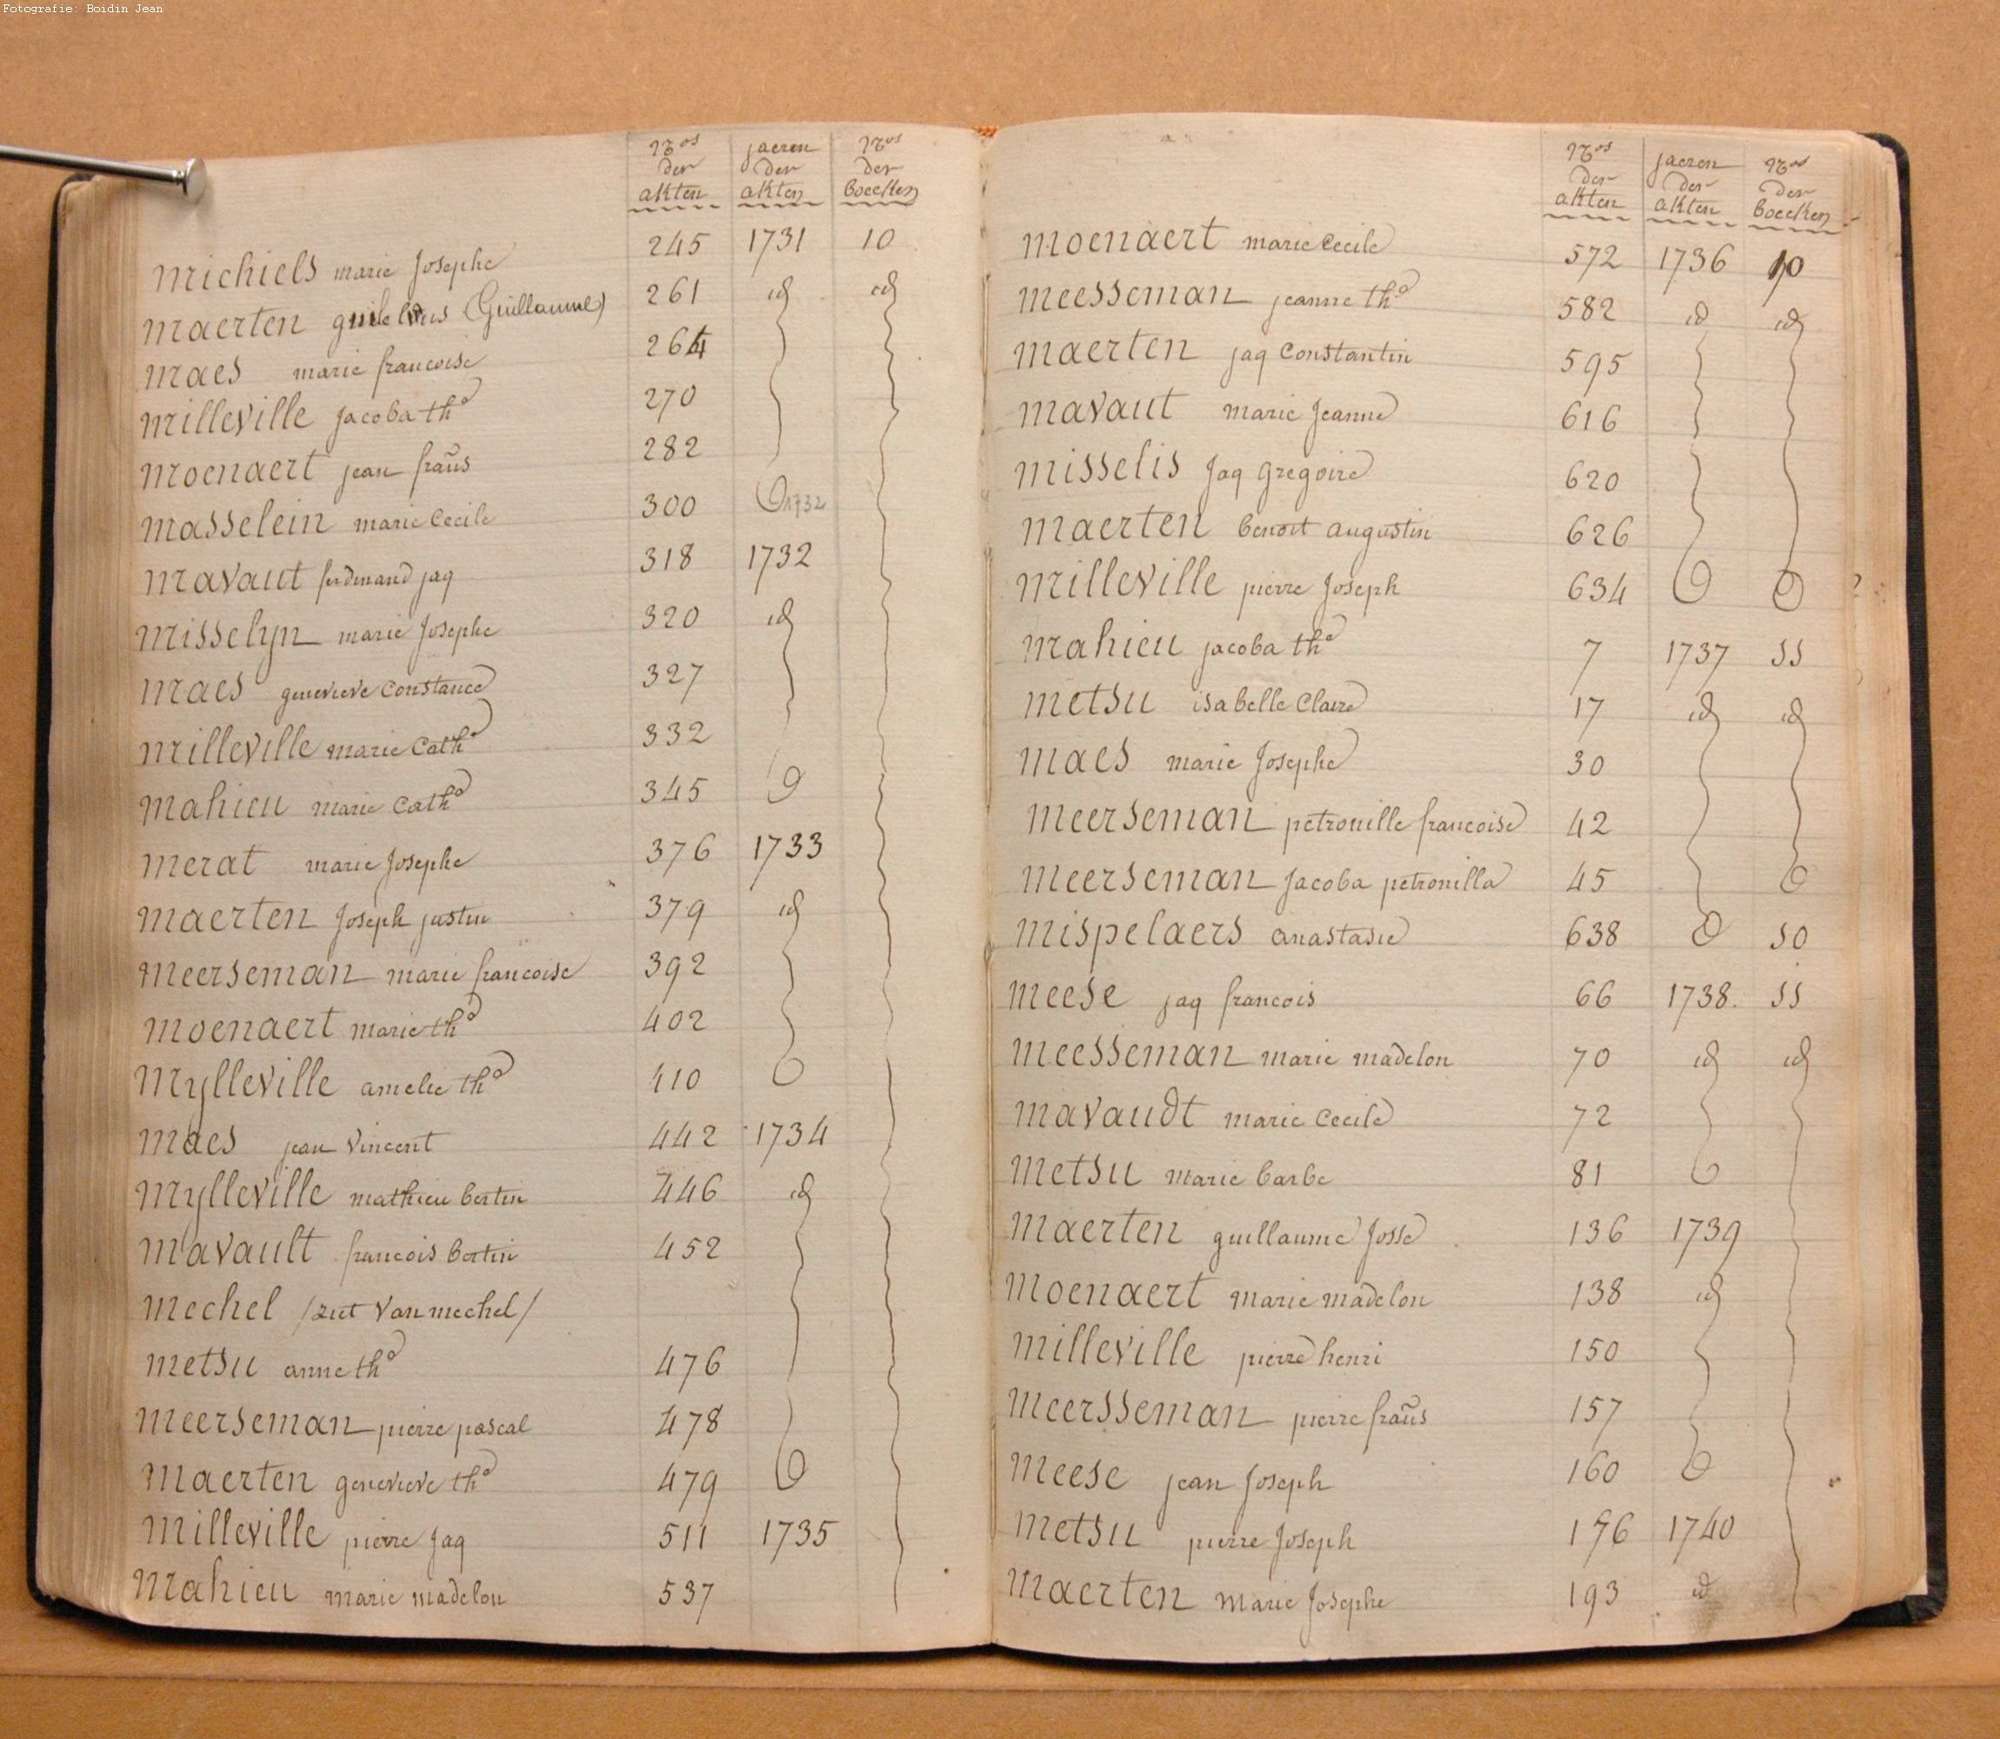 Fotografie: Boidin Jean
Nros der akten jaeren der akten Nros der boecken
michiels marie Josephe 245 1731 10
maerten guilelmus (Guillaume) 261 id id
maes marie francoise 264
milleville Jacoba tha 270
moenaert jean frañs 282
masselein marie Cecile 300 1732
mavaut ferdinand jaq 318 1732
misselyn marie Josephe 320 id
maes genevieve Constance 327
milleville marie Catha 332
mahieu marie Catha 345
merat marie Josephe 376 1733
maerten Joseph justin 379 id
meerseman marie francoise 392
moenaert marie tha 402
mylleville amelie tha 410
maes jean Vincent 442 1734
mylleville mathieu bertin 446 id
mavault francois bertin 452
mechel /ziet Van mechel/
metsu anne tha 476
meerseman pierre pascal 478
maerten genevieve tha 479
milleville pierre Jaq 511 1735
mahieu marie madelon 537
Nros der akten jaeren der akten Nros der boecken
moenaert marie Cecile 572 1736 10
meesseman jeanne tha 582 id id
maerten jaq Constantin 595
mavaut marie Jeanne 616
misselis Jaq Gregoire 620
maerten benoit augustin 626
milleville pierre Joseph 634
mahieu jacoba tha 7 1737 SS
metsu isabelle Claire 17 id id
maes marie Josephe 30
meerseman petronille francoise 42
meerseman Jacoba petronilla 45
mispelaers anastasie 638 S0
meese jaq francois 66 1738 SS
meesseman marie madelon 70 id id
mavaudt marie Cecile 72
metsu marie barbe 81
maerten guillaume Josse 136 1739
moenaert marie madelon 138 id
milleville pierre henri 150
meersseman pierre frañs 157
meese jean Joseph 160
metsu pierre Joseph 176 1740
maerten marie Josephe 193 id